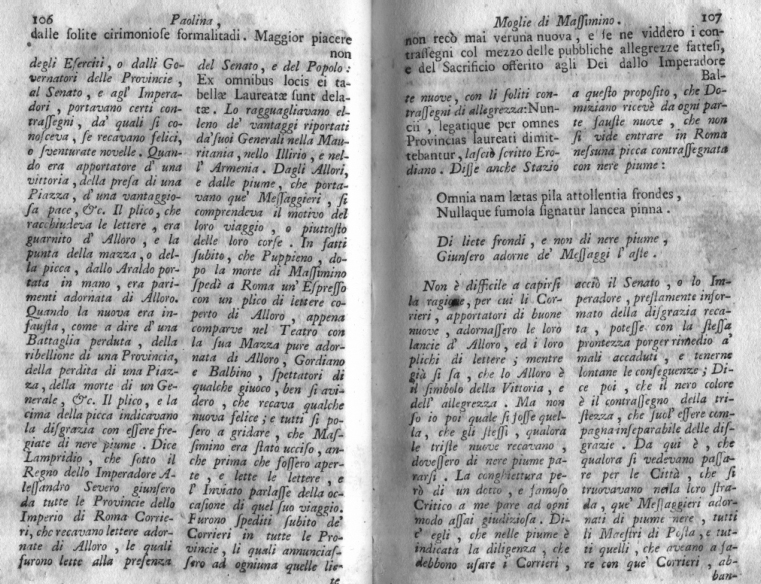 106 Paolina,
dalle solite cirimoniose formalitadi. Maggior piacere
non
degli Eserciti, o dalli Go-
vernatori delle Provincie,
al Senato, e agl' Impera-
dori, portavano certi con-
trassegni, da' quali si co-
nosceva, se recavano felici,
o sventurate novelle. Quan-
do era apportatore d' una
vittoria, della presa di una
Piazza, d' una vantaggio-
sa pace, &c. Il plico, che
racchiudeva le lettere, era
guarnito d' Alloro, e la
punta della mazza, o del-
la picca, dallo Araldo por-
tata in mano, era pari-
menti adornata di Alloro.
Quando la nuova era in-
fausta, come a dire d' una
Battaglia perduta, della
ribellione di una Provincia,
della perdita di una Piaz-
za, della morte di un Ge-
nerale, &c. Il plico, e la
cima della picca indicavano
la disgrazia con essere fre-
giate di nere piume. Dice
Lampridio, che sotto il
Regno dello Imperadore A-
lessandro Severo giunsero
da tutte le Provincie dello
Imperio di Roma Corrie-
ri, che recavano lettere ador-
nate di Alloro, le quali
furono lette alla presenza
del Senato, e del Popolo:
Ex omnibus locis ei ta-
bellæ Laureatæ sunt dela-
tæ. Lo ragguagliavano el-
leno de' vantaggi riportati
da' suoi Generali nella Mau-
ritania, nello Illirio, e nel-
l' Armenia. Dagli Allori,
e dalle piume, che porta-
vano que' Messaggieri, si
comprendeva il motivo del
loro viaggio, o piuttosto
delle loro corse. In fatti
subito, che Puppieno, do-
po la morte di Massimino
spedì a Roma un' Espresso
con un plico di lettere co-
perto di Alloro, appena
comparve nel Teatro con
la sua Mazza pure ador-
nata di Alloro, Gordiano
e Balbino, spettatori di
qualche giuoco, ben si avi-
dero, che recava qualche
nuova felice; e tutti si po-
sero a gridare, che Mas-
simino era stato ucciso, an-
che prima che fossero aper-
te, e lette le lettere, e
l' Inviato parlasse della oc-
casione di quel suo viaggio.
Furono spediti subito de'
Corrieri in tutte le Pro-
vincie, li quali annunciaf-
sero ad ogniuna quelle lie-
te
Moglie di Massimino. 107
non recò mai veruna nuova, e se ne viddero i con-
trassegni col mezzo delle pubbliche allegrezze fattesi,
e del Sacrificio offerito agli Dei dallo Imperadore
Bal-
te nuove, con li soliti con-
trassegni di allegrezza: Nun-
cii, legatique per omnes
Provincias laureati dimit-
tebantur, lasciò scritto Ero-
diano. Disse anche Stazio
a questo proposito, che Do-
miziano ricevè da ogni par-
te fauste nuove, che non
si vide entrare in Roma
nessuna picca contrassegnata
con nere piume:
Omnia nam lætas pila attollentia frondes,
Nullaque fumosa signatur lancea pinna.
Di liete frondi, e non di nere piume,
Giunsero adorne de' Messaggi l' aste.
Non è difficile a capirsi
la ragione, per cui li Cor-
rieri, apportatori di buone
nuove, adornassero le loro
lancie d' Alloro, ed i loro
plichi di lettere; mentre
già si sa, che lo Alloro è
il simbolo della Vittoria, e
dell' allegrezza. Ma non
so io poi quale si fosse quel-
la, che gli stessi, qualora
le triste nuove recavano,
dovessero di nere piume pa-
rarsi. La conghiettura pe-
rò di un dotto, e famoso
Critico a me pare ad ogni
modo assai giudiziosa. Di-
c' egli, che nelle piume è
indicata la diligenza, che
debbono usare i Corrieri,
acciò il Senato, o lo Im-
peradore, prestamente infor-
mato della disgrazia reca-
ta, potesse con la stessa
prontezza porger rimedio a'
mali accaduti, e tenerne
lontane le conseguenze; Di-
ce poi, che il nero colore
è il contrassegno della tri-
stezza, che suol' essere com-
pagna inseparabile delle dis-
grazie. Da qui è, che
qualora si vedevano passa-
re per le Città, che si
truovavano nella loro stra-
da, que' Messaggieri ador-
nati di piume nere, tutti
li Maestri di Posta, e tut-
ti quelli, che aveano a fa-
re con que' Corrieri, ab-
ban-